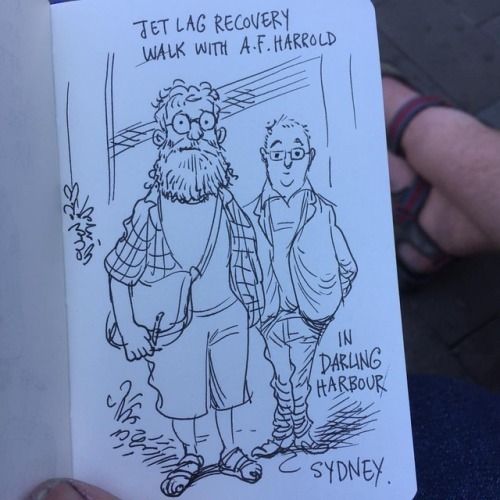 JET LAG RECOVERY
WALK WITH A.F. HARROLD
IN
DARLING
HARBOUR
SYDNEY.